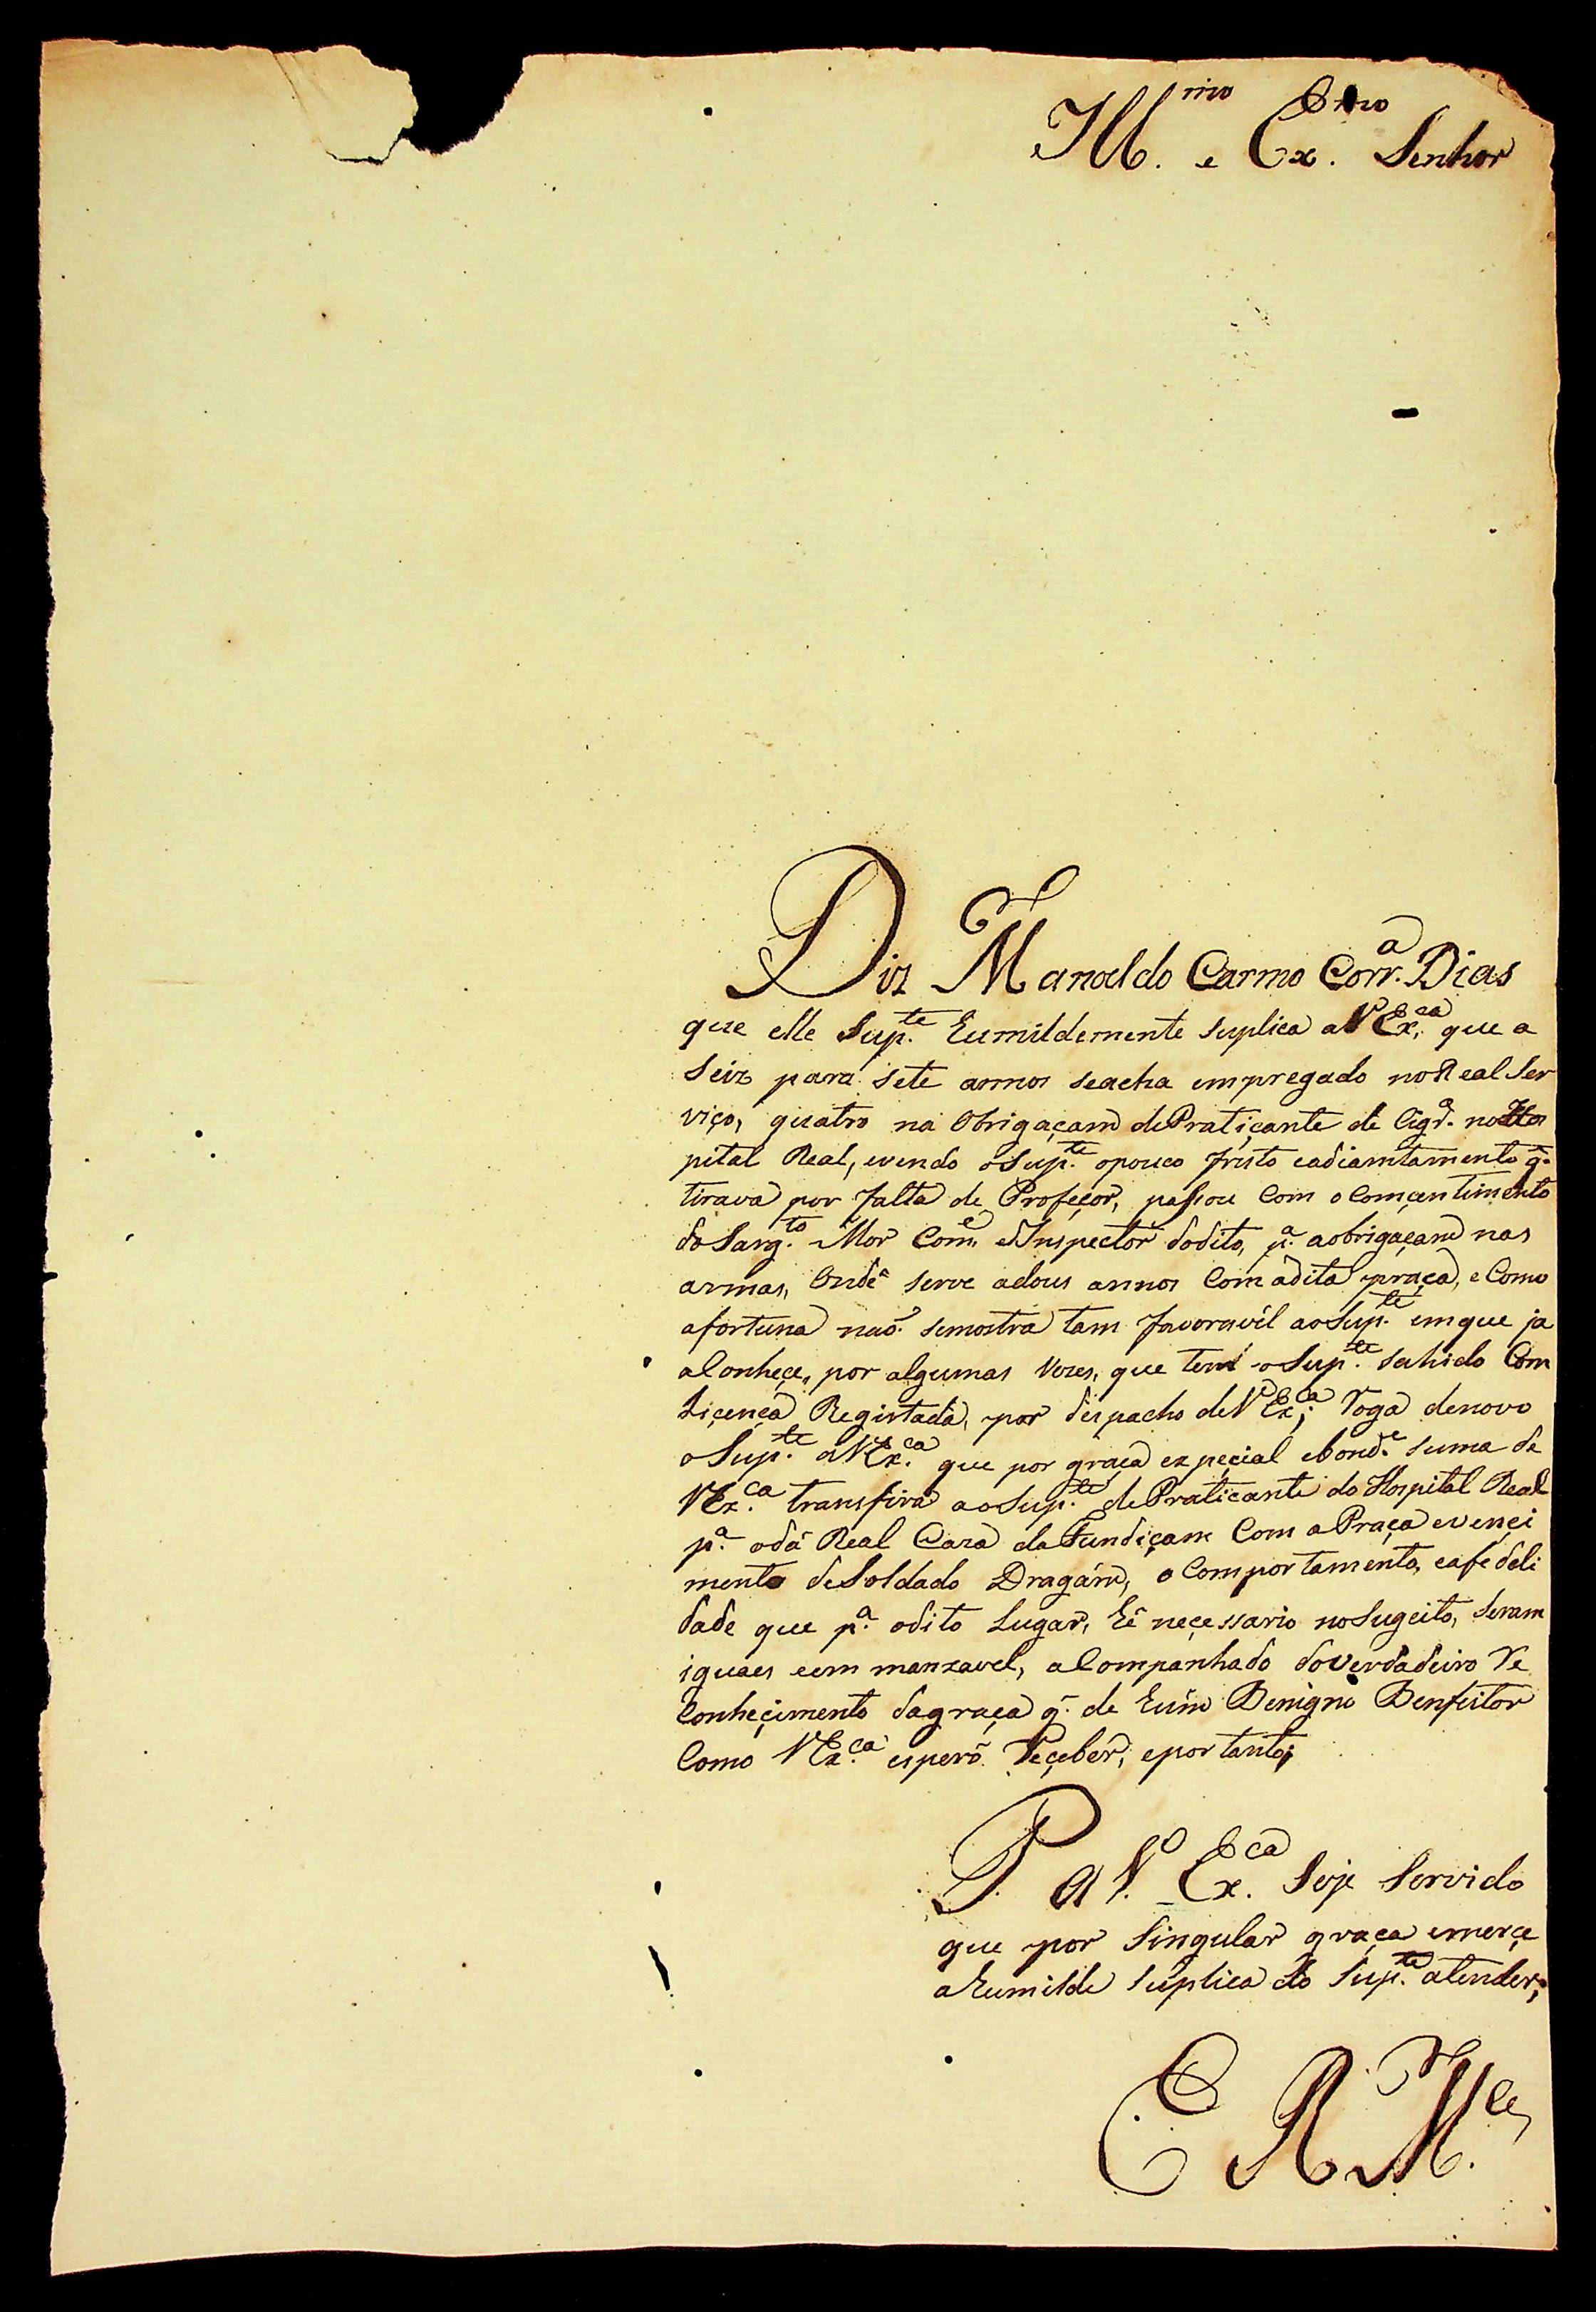 Ill.mo e Ex.mo Senhor
Diz Manoel do Carmo Corr.a Dias
que elle Sup.te Eumildemente suplica a V Ex.ca que a
seiz para sete annos seacha empregado no Real Ser
viço, quatro na Obrigaçam de Pratiçante de Cirg.a no Hos
pital Real, evendo o Sup.te opouco fruto eadiamtamento q.
tirava por falta de Profeçor, passou Com o Comçentimento
do Sarg.to Mor Com.e e Inspector dodito, p.a aobrigaçam nas
armas, Onde serve adous annos Com adita praça, e Como
afortuna naõ semostra tam favoravel ao Sup.te emque ja
aConheçe, por algumas Vezes, que tem o Sup.te sahido Com
Liçença Registada, por despacho de V Ex.ca; Roga denovo
o Sup.te a V Ex.ca que por graça espeçial ebond.e suma de
V Ex.ca transfira ao Sup.te de Praticante do Hospital Real
p.a oda Real Caza da Fundiçam Com a Praça evençi
mento de Soldado Dragám, o Comportamento, eafedeli
dade que p.a odito Lugar, Eê neçessario no Sugeito, seram
iguaes eem manxavel, aCompanhado doverdadeiro Re
Conheçimento dagraça q. de Eum Benigno Benfeitor
Como V Ex.ca espero Reçeber, eportanto;
P. a V. Ex.ca Seje Servido
que por Singular graça emerçe
aEumilde Suplica do Sup.te atender;
E R M.ce